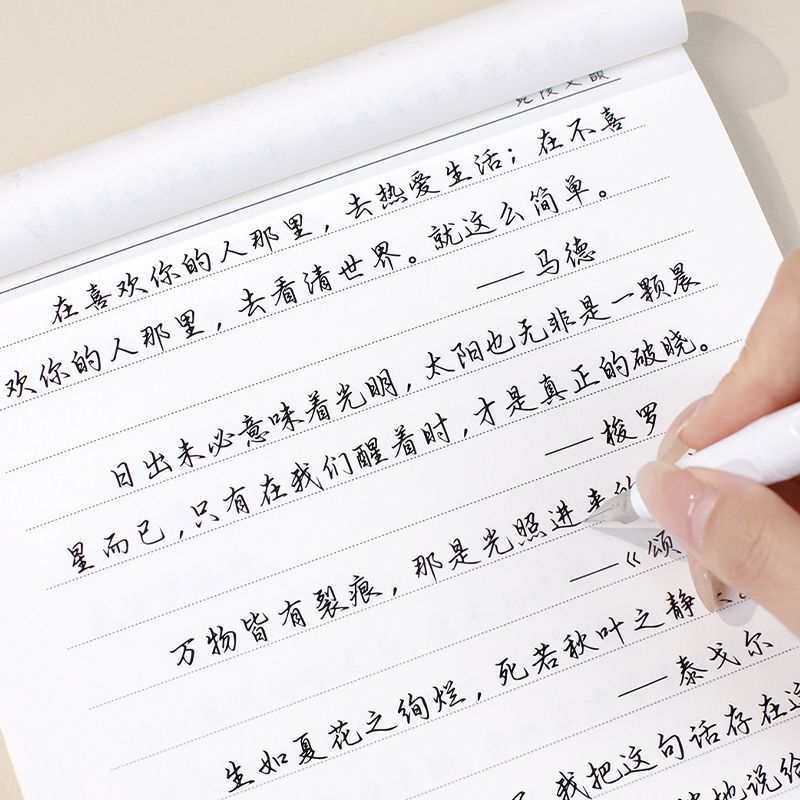 在喜欢你的人那里，去热爱生活；在不喜
欢你的人那里，去看清世界。就这么简单。
——马德
日出未必意味着光明，太阳也无非是一颗晨
星而已，只有在我们醒着时，才是真正的破晓。
——梭罗
万物皆有裂痕，那是光照进来的
——《颂
生如夏花之绚烂，死若秋叶之静
——泰戈尔
我把这句话存在这
地说给